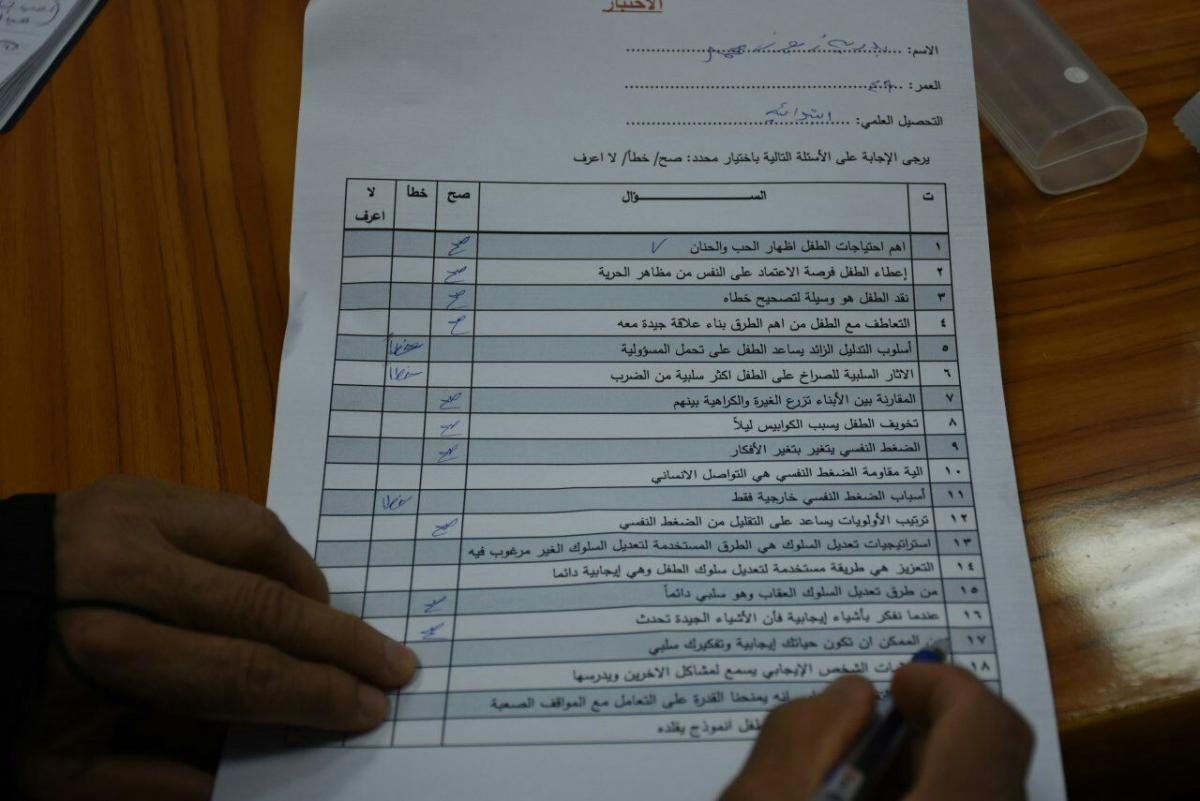 الاختبار
الاسم:
العمر:
التحصيل العلمي: ابتدائية
يرجى الإجابة على الأسئلة التالية باختيار محدد: صح/ خطأ/ لا اعرف
ت السؤال صح خطأ لا اعرف
١ اهم احتياجات الطفل اظهار الحب والحنان ✓ صح
٢ إعطاء الطفل فرصة الاعتماد على النفس من مظاهر الحرية صح
٣ نقد الطفل هو وسيلة لتصحيح خطاه صح
٤ التعاطف مع الطفل من اهم الطرق بناء علاقة جيدة معه صح
٥ أسلوب التدليل الزائد يساعد الطفل على تحمل المسؤولية خطا
٦ الاثار السلبية للصراخ على الطفل اكثر سلبية من الضرب خطا
٧ المقارنة بين الأبناء تزرع الغيرة والكراهية بينهم صح
٨ تخويف الطفل يسبب الكوابيس ليلاً صح
٩ الضغط النفسي يتغير بتغير الأفكار صح
١٠ الية مقاومة الضغط النفسي هي التواصل الانساني
١١ أسباب الضغط النفسي خارجية فقط خطا
١٢ ترتيب الأولويات يساعد على التقليل من الضغط النفسي صح
١٣ استراتيجيات تعديل السلوك هي الطرق المستخدمة لتعديل السلوك الغير مرغوب فيه
١٤ التعزيز هي طريقة مستخدمة لتعديل سلوك الطفل وهي إيجابية دائما
١٥ من طرق تعديل السلوك العقاب وهو سلبي دائماً صح
١٦ عندما نفكر بأشياء إيجابية فأن الأشياء الجيدة تحدث صح
١٧ الممكن ان تكون حياتك إيجابية وتفكيرك سلبي
١٨ الشخص الإيجابي يسمع لمشاكل الاخرين ويدرسها
انه يمنحنا القدرة على التعامل مع المواقف الصعبة
طفل انموذج يقلده